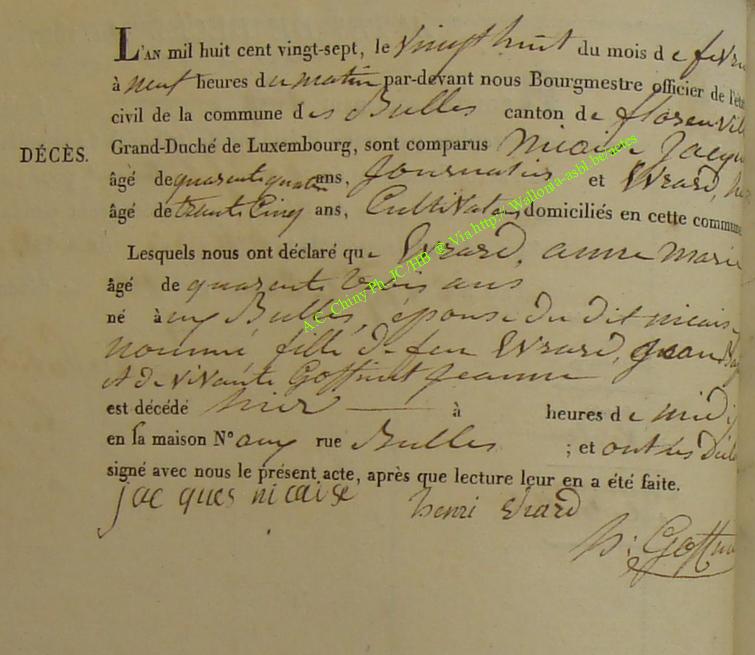 L'AN mil huit cent vingt-sept, le vingt huit du mois de fevr
à neuf heures du matin par-devant nous Bourgmestre officier de l'éta
civil de la commune des Bulles canton de florenvil
Grand-Duché de Luxembourg, sont comparus nicaise Jacqu
DÉCÈS.
âgé de quarente quatre ans, Journalier et Evrard, hen
âgé de trente Cinq ans, Cultivateur domiciliés en cette commune
Lesquels nous ont déclaré que Evrard, anne marie
âgé de quarente trois ans
né à aux Bulles, épouse du dit nicaise
nommé, fille de feu Evrard, Jean
et de vivante Goffinet Jeanne
est décédé hier — à heures de midy
en sa maison N° aux rue Bulles ; et ont les Décla
signé avec nous le présent acte, après que lecture leur en a été faite.
jacques nicaise henri Evrard
h: Goffin
A.C. Chiny Ph. JC /HB @ Via http:// Wallonia-asbl.be/actes